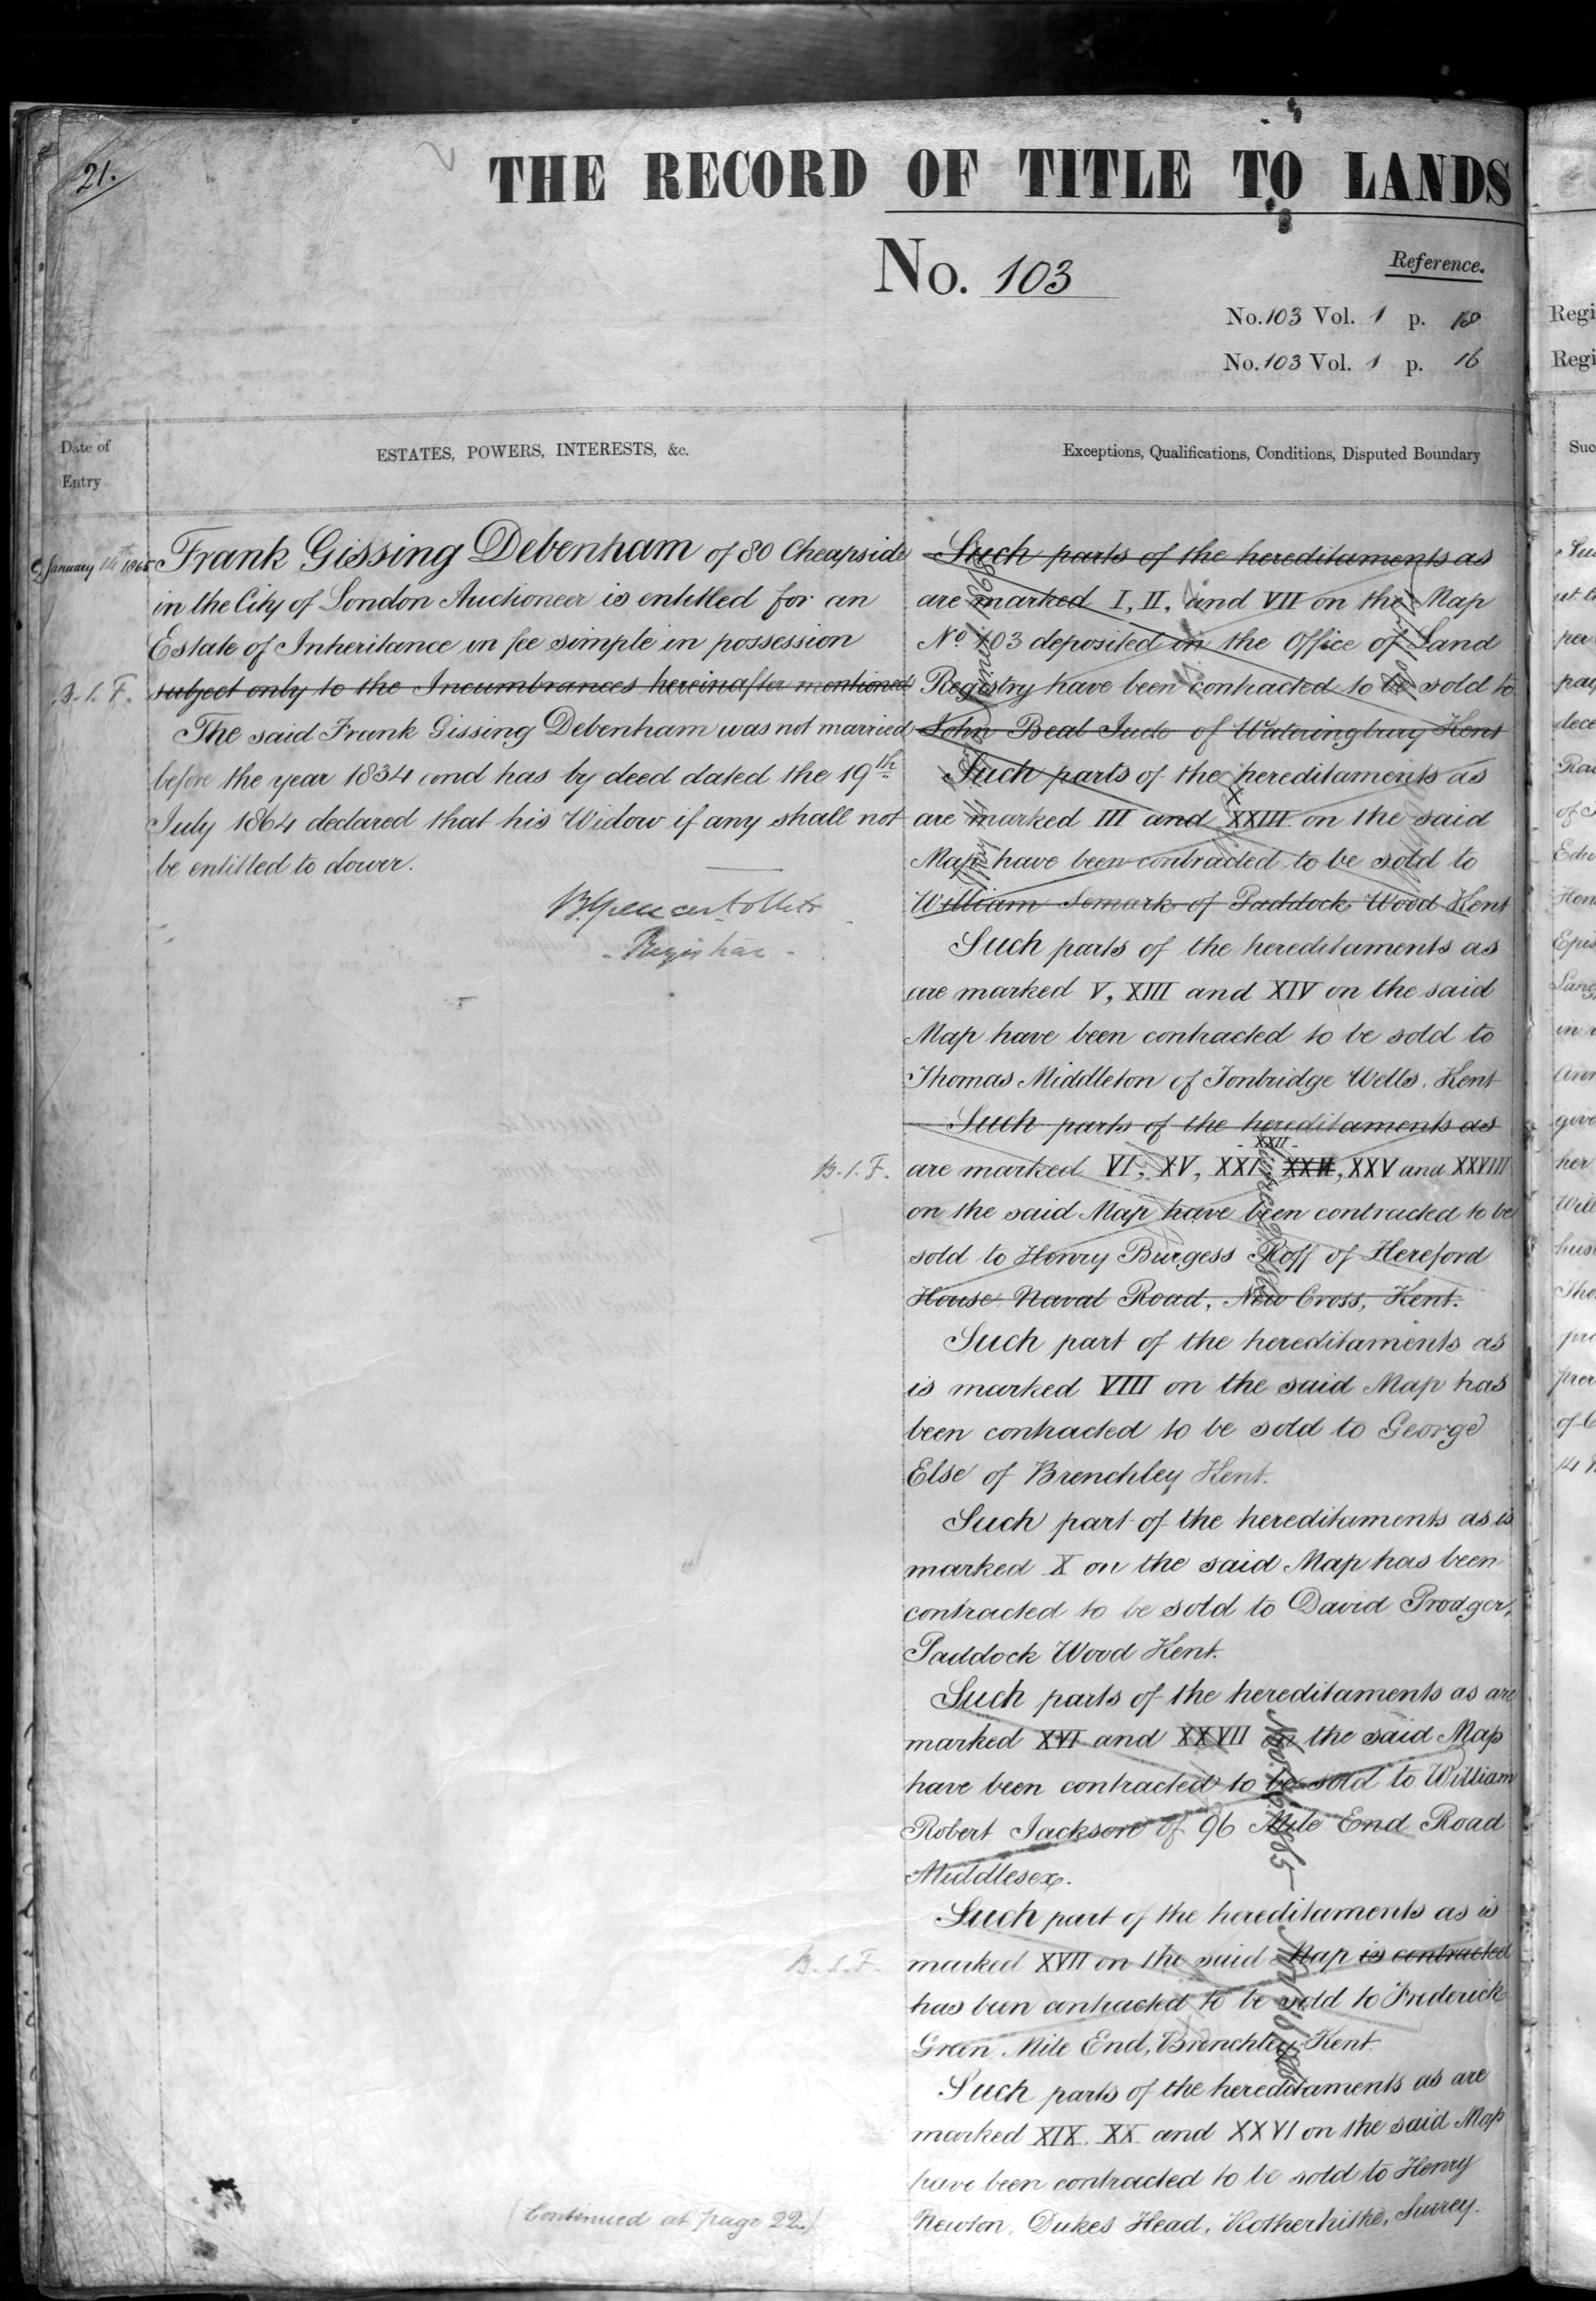 21.
THE RECORD OF TITLE TO LANDS
No. 103
Reference.
No. 103 Vol. 1 p. 18
No. 103 Vol. 1 p. 16
Date of
Entry
ESTATES, POWERS, INTERESTS, &c.
Exceptions, Qualifications, Conditions, Disputed Boundary
January 14th 1865
Frank Gissing Debenham of 80 Cheapside
in the City of London Auctioneer is entitled for an
Estate of Inheritance in fee simple in possession
B.S.F. subject only to the Incumbrances hereinafter mentioned
The said Frank Gissing Debenham was not married
before the year 1834 and has by deed dated the 19th
July 1864 declared that his Widow if any shall not
be entitled to dower.
Registrar
Such parts of the hereditaments as
are marked I, II, and VII on the Map
No 103 deposited in the Office of Land
Registry have been contracted to be sold to
John Beal Jude of Wateringbury Kent
Such parts of the hereditaments as
are marked III and XXIII on the said
Map have been contracted to be sold to
William Semark of Paddock Wood Kent
Such parts of the hereditaments as
are marked V, XIII and XIV on the said
Map have been contracted to be sold to
Thomas Middleton of Tonbridge Wells. Kent
Such parts of the hereditaments as
XXII
B.S.F. are marked VI, XV, XXI, XXVI, XXV and XXVIII
on the said Map have been contracted to be
sold to Henry Burgess Roff of Hereford
House Naval Road, New Cross, Kent.
Such part of the hereditaments as
is marked VIII on the said Map has
been contracted to be sold to George
Else of Brenchley Kent.
Such part of the hereditaments as is
marked X on the said Map has been
contracted to be sold to David Prodger,
Paddock Wood Kent.
Such parts of the hereditaments as are
marked XVI and XXVII on the said Map
have been contracted to be sold to William
Robert Jackson of 96 Mile End Road
Middlesex.
Such part of the hereditaments as is
B.S.F. marked XVII on the said Map is contracted
has been contracted to be sold to Frederick
Green Mile End, Brenchley Kent
Such parts of the hereditaments as are
marked XIX. XX and XXVI on the said Map
have been contracted to be sold to Henry
Newton, Dukes Head, Rotherhithe, Surrey.
(Continued at page 22.)
Regi
Regi
Suc